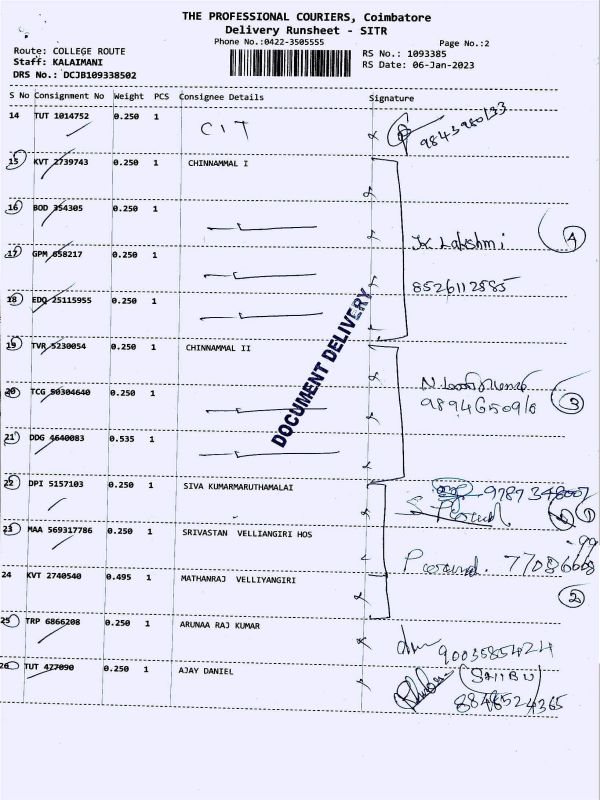 THE PROFESSIONAL COURIERS, Coimbatore
Delivery Runsheet - SITR
Phone No.:0422-3505555
Page No.:2
Route: COLLEGE ROUTE
Staff: KALAIMANI
DRS No.: DCJB109338502
RS No.: 1093385
RS Date: 06-Jan-2023
S No Consignment No Weight PCS Consignee Details Signature
14 TUT 1014752 0.250 1 CIT
15 KVT 2739743 0.250 1 CHINNAMMAL I
16 BOD 354305 0.250 1
4
17 GPM 858217 0.250 1
K Lakshmi
8526112885
18 EDQ 25115955 0.250 1
19 TVR 5230054 0.250 1 CHINNAMMAL II
20 TCG 50304640 0.250 1
3
21 DDG 4640083 0.535 1
DOCUMENT DELIVERY
22 DPI 5157103 0.250 1 SIVA KUMARMARUTHAMALAI
1
23 MAA 569317786 0.250 1 SRIVASTAN VELLIANGIRI HOS
24 KVT 2740540 0.495 1 MATHANRAJ VELLIYANGIRI
2
25 TRP 6866208 0.250 1 ARUNAA RAJ KUMAR
9003585424
26 TUT 477090 0.250 1 AJAY DANIEL
8848524365